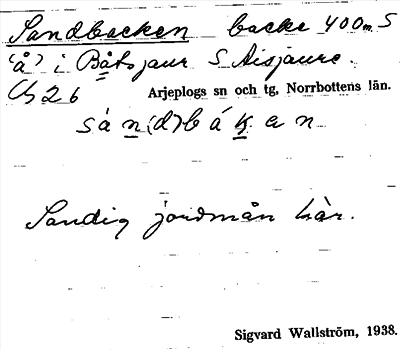 Sandbacken backe 400m S
"å" i Båtsjaur S Aisjaure.
Cb 26 Arjeplogs sn och tg, Norrbottens län.
sán(d)bákan
Sandig jordmån här.
Sigvard Wallström, 1938.